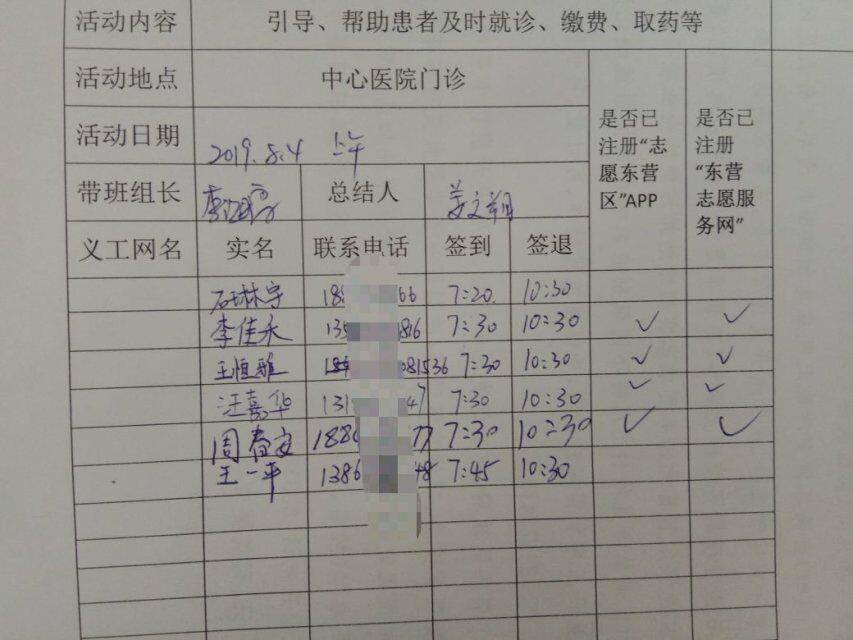 活动内容 引导、帮助患者及时就诊、缴费、取药等
活动地点 中心医院门诊 是否已注册“志愿东营区”APP 是否已注册“东营志愿服务网”
活动日期 2019.8.4 上午
带班组长 总结人
义工网名 实名 联系电话 签到 签退
石林宇 18 66 7:20 10:30
李佳永 135 1816 7:30 10:30 ✓ ✓
王恒雅 081536 7:30 10:30 ✓ ✓
汪嘉华 131 47 7:30 10:30 ✓ ✓
周春安 188 77 7:30 10:30 ✓ ✓
王一平 1386 48 7:45 10:30